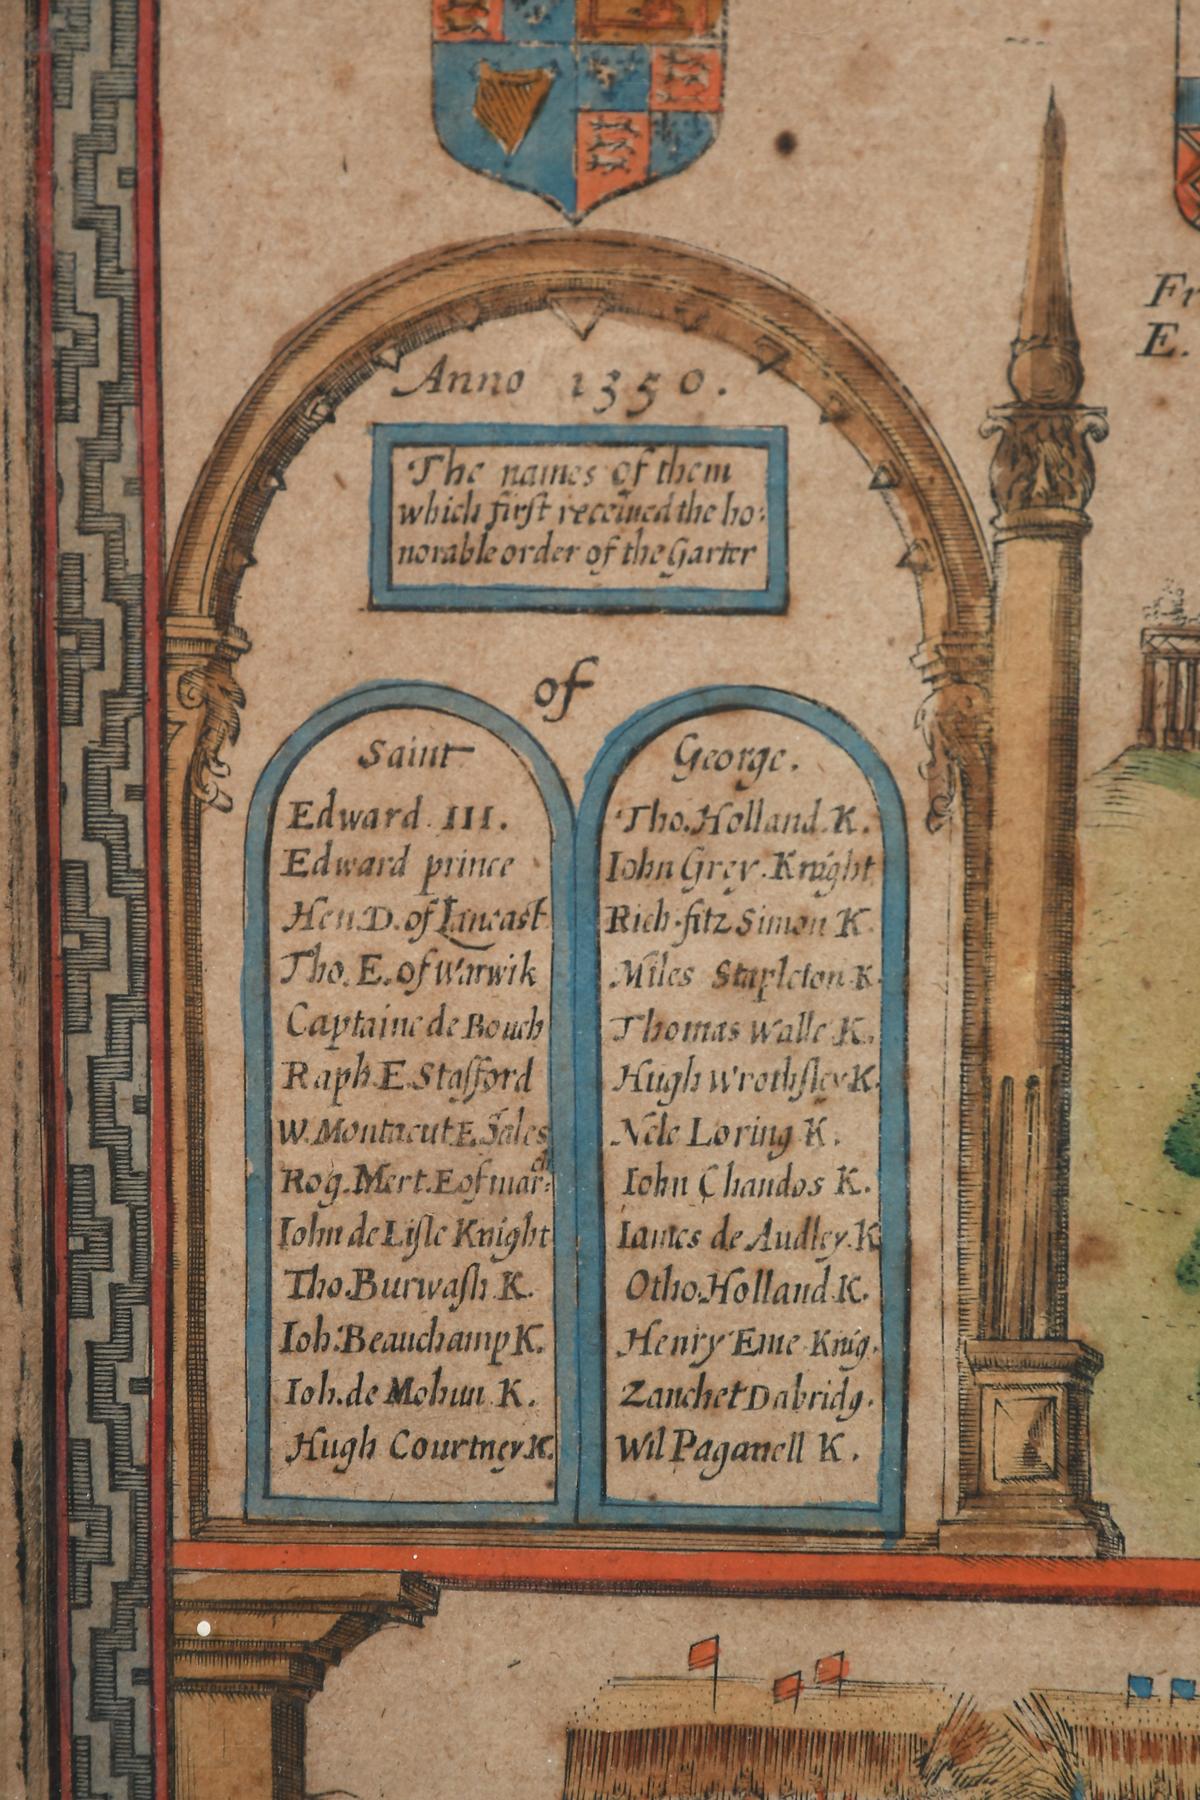 Anno 1350.
The names of them
which first receiued the ho:
norable order of the Garter
of
Saint
Edward III.
Edward prince
Hen. D. of Lancast
Tho. E. of warwik
Captaine de Bouch
Raph. E. Stafford
W. Montacut E. Sales
Rog. Mert. E of mar:ch
Iohn de Lisle Knight
Tho. Burwash K.
Ioh: Beauchamp K.
Ioh. de Mohun K.
Hugh Courtney. K.
George.
Tho. Holland. K.
Iohn Grey. Knight
Rich. fitz Simon K.
Miles Stapleton K.
Thomas Walle K.
Hugh Wrothsley K.
Nele Loring K.
Iohn Chandos K.
Iames de Audley. K
Otho. Holland K.
Henry Eme Knig.
Zanchet Dabridg.
Wil Paganell K.
Fr
E.